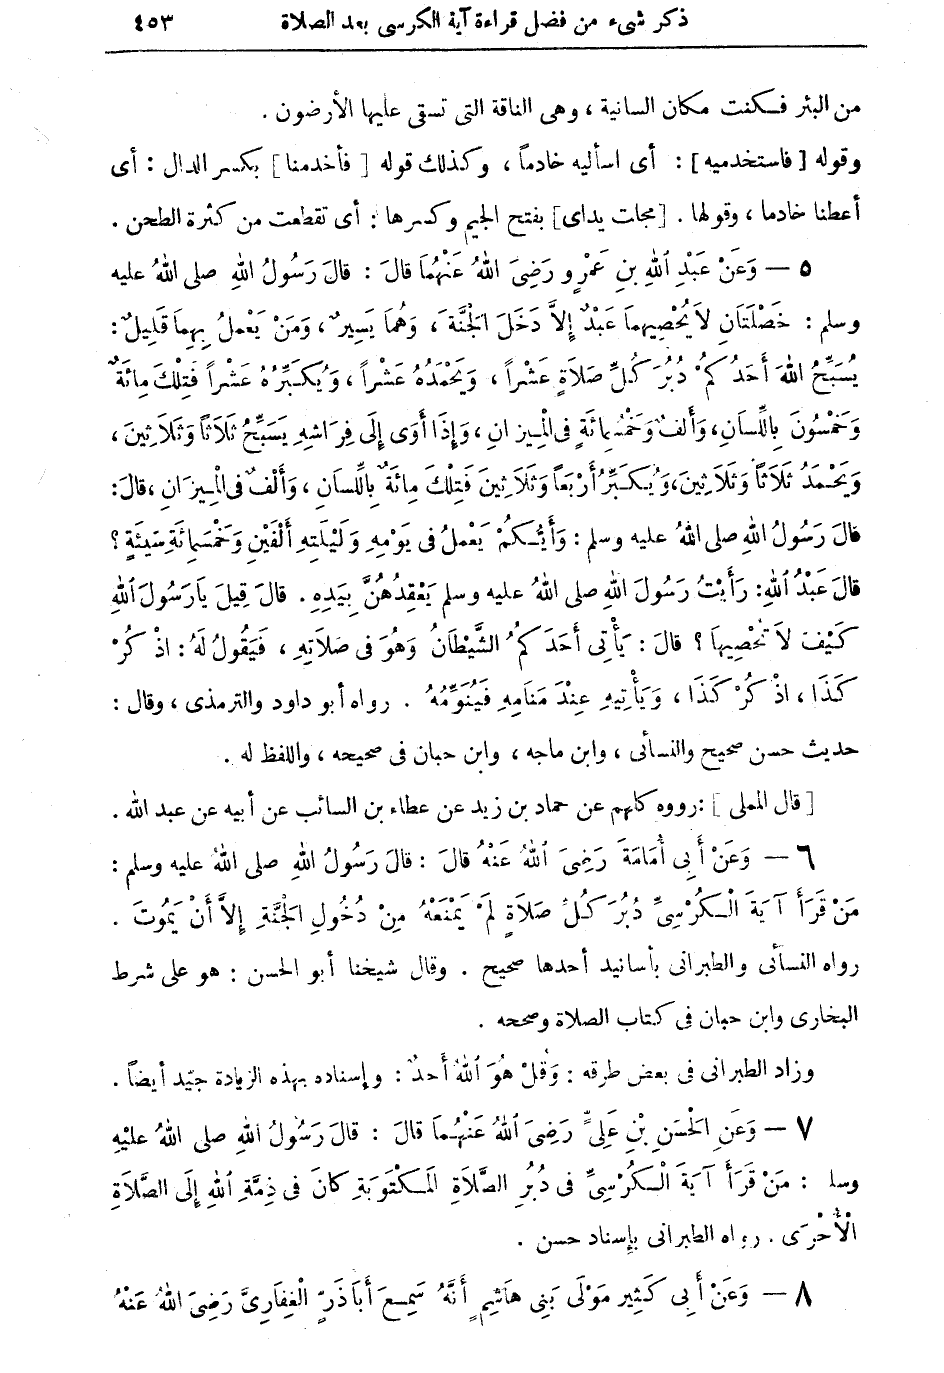 ذكر شىء من فضل قراءة آية الكرسى بعد الصلاة ٤٥٣
من البئر فكنت مكان السانية ، وهى الناقة التى تسقى عليها الأرضون .
وقوله [ فاستخدميه ] : أى اسأليه خادماً ، وكذلك قوله [ فأخدمنا ] بكسر الدال : أى
أعطنا خادما ، وقولها . [ مجلت يداى ] بفتح الجيم وكسرها : أى تقطعت من كثرة الطحن .
٥ – وَعَنْ عَبْدِ اللهِ بنِ عَمْرٍو رَضِىَ اللهُ عَنْهُمَا قالَ : قالَ رَسُولُ اللهِ صلى اللهُ عليه
وسلم : خَصْلَتَانِ لاَ يُحْصِيهِمَا عَبْدٌ إِلاَّ دَخَلَ الجَنَّةَ ، وَهُمَا يَسِيرٌ ، وَمَنْ يَعْمَلُ بِهِمَا قَلِيلٌ :
يُسَبِّحُ اللهَ أَحَدُكُمْ دُبُرَ كُلِّ صَلاَةٍ عَشْراً ، وَيَحْمَدُهُ عَشْراً ، وَيُكَبِّرُهُ عَشْراً فَتِلْكَ مِائَةٌ
وَخَمْسُونَ بِاللِّسَانِ ، وَأَلفٌ وَخَمْسُمِائَةٍ فى الْمِيزانِ ، وَإِذَا أَوَى إِلَى فِرَاشِهِ يُسَبِّحُ ثَلاَثاً وَثَلاَثِينَ ،
وَيَحْمَدُ ثَلاَثاً وَثَلاَثِينَ ، وَيُكَبِّرُ أَرْبَعاً وَثَلاَثِينَ فَتِلْكَ مِائَةٌ بِاللِّسَانِ ، وَأَلْفٌ فى الْمِيزَانِ ، قالَ :
قالَ رَسُولُ اللهِ صلى اللهُ عليه وسلم : وَأَيُّكُمْ يَعْمَلُ فى يَوْمِهِ وَلَيْلَتِهِ أَلْفَيْنِ وَخَمْسَمِائَةِ سَيِّئَةٍ ؟
قالَ عَبْدُ اللهِ : رَأَيْتُ رَسُولَ اللهِ صلى اللهُ عليه وسلم يَعْقِدُهُنَّ بِيَدِهِ . قالَ قِيلَ يَارَسُولَ اللهِ
كَيْفَ لاَ نُحْصِيهَا ؟ قالَ : يَأْتِى أَحَدَكُمُ الشَّيْطَانُ وَهُوَ فى صَلاَتِهِ ، فَيَقُولُ لَهُ : اذْكُرْ
كَذَا ، اذْكُرْ كَذَا ، وَيَأْتِيهِ عِنْدَ مَنَامِهِ فَيُنَوِّمُهُ . رواه أبو داود والترمذى ، وقال :
حديث حسن صحيح والنسائى ، وابن ماجه ، وابن حبان فى صحيحه ، واللفظ له .
[ قال المملى ] : رووه كلهم عن حماد بن زيد عن عطاء بن السائب عن أبيه عن عبد الله .
٦ – وَعَنْ أَبِى أُمَامَةَ رَضِىَ اللهُ عَنْهُ قالَ : قالَ رَسُولُ اللهِ صلى اللهُ عليه وسلم :
مَنْ قَرَأَ آيَةَ الْكُرْسِىِّ دُبُرَ كُلِّ صَلاَةٍ لَمْ يَمْنَعْهُ مِنْ دُخُولِ الجَنَّةِ إِلاَّ أَنْ يَمُوتَ .
رواه النسائى والطبرانى بأسانيد أحدها صحيح . وقال شيخنا أبو الحسن : هو على شرط
البخارى وابن حبان فى كتاب الصلاة وصححه .
وزاد الطبرانى فى بعض طرقه : وَقُلْ هُوَ اللهُ أَحَدٌ : وإسناده بهذه الزيادة جيّد أيضاً .
٧ – وَعَنِ الحَسَنِ بْنِ عَلِىٍّ رَضِىَ اللهُ عَنْهُمَا قالَ : قالَ رَسُولُ اللهِ صلى اللهُ عَلَيْهِ
وسلم : مَنْ قَرَأَ آيَةَ الْكُرْسِىِّ فى دُبُرِ الصَّلاَةِ المَكْتُوبَةِ كانَ فى ذِمَّةِ اللهِ إِلَى الصَّلاَةِ
الْأُخْرَى . رواه الطبرانى بإسناد حسن .
٨ – وَعَنْ أَبِى كَثِيرٍ مَوْلَى بَنِى هَاشِمٍ أَنَّهُ سَمِعَ أَبَا ذَرٍّ الْغِفَارِىَّ رَضِىَ اللهُ عَنْهُ